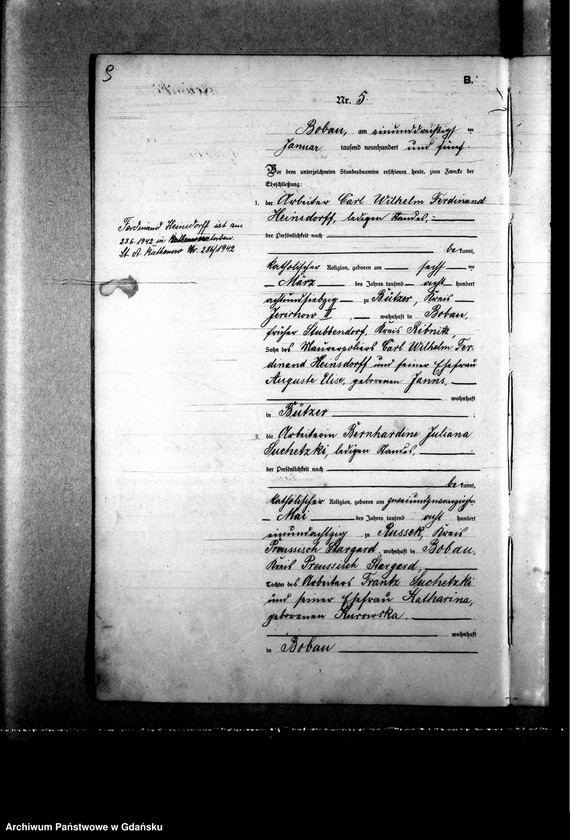 9
B.
Nr. 5.
Bobau, am einunddreißigsten
Januar tausend neunhundert und fünf
Vor dem unterzeichneten Standesbeamten erschienen heute, zum Zwecke der
Eheschließung:
1. der Arbeiter Carl Wilhelm Ferdinand
Heinsdorff, ledigen Standes,
der Persönlichkeit nach
be kannt,
katholischer Religion, geboren am sechsten
März des Jahres tausend acht hundert
achtundsiebzig zu Bützer, Kreis
Jerichow II, wohnhaft in Bobau,
früher Stubbendorf, Kreis Ribnitz
Sohn des Maurerpoliers Carl Wilhelm Fer-
dinand Heinsdorff und seiner Ehefrau
Auguste Elise, geborenen Janns,
wohnhaft
in Bützer
2. die Arbeiterin Bernhardine Juliana
Suchetzki, ledigen Standes,
der Persönlichkeit nach
be kannt,
katholischer Religion, geboren am zweiundzwanzigsten
Mai des Jahres tausend acht hundert
einundachtzig zu Russek, Kreis
Preussisch Stargard, wohnhaft in Bobau,
Kreis Preussisch Stargard,
Tochter des Arbeiters Frantz Suchetzki
und seiner Ehefrau Katharina,
geborenen Kurowska.
wohnhaft
in Bobau
Ferdinand Heinsdorff ist am
23.6.1942 in Rathenow verstorben.
St. A. Rathenow Nr. 286/1942
Archiwum Państwowe w Gdańsku